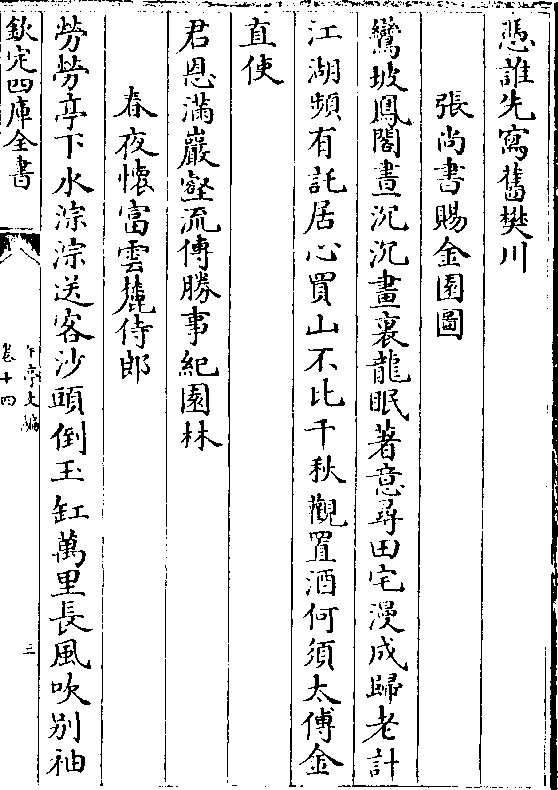 憑誰先寫舊樊川
張尚書賜金園圖
鸞坡鳳閣晝沉沉畫裏龍眠著意尋田宅漫成歸老計
江湖頻有託居心買山不比千秋觀置酒何須太傅金
直使
君恩滿巖壑流傳勝事紀園林
春夜懷富雲麓侍郎
勞勞亭下水淙淙送客沙頭倒玉缸萬里長風吹別袖
欽定四庫全書
午亭文編
卷十四
三